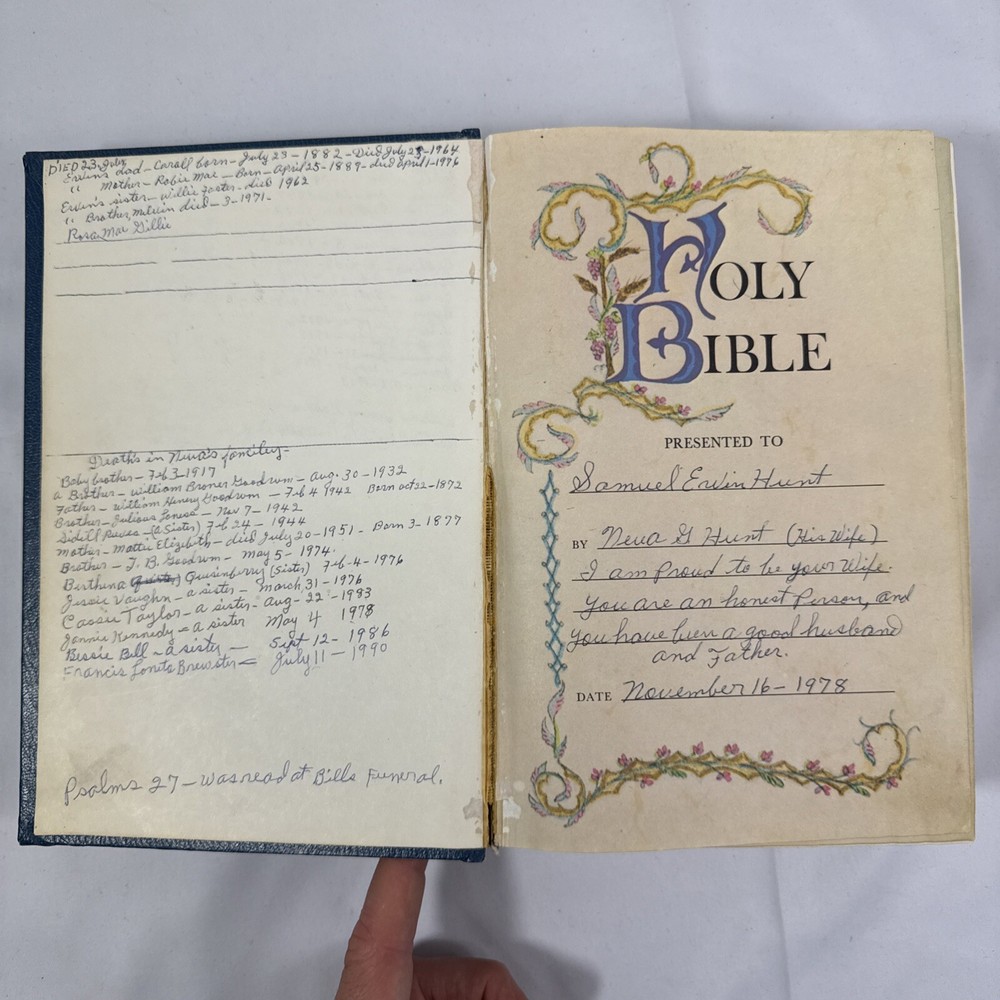 DIED 23. July
Erwin's dad - Corall born - July 23 - 1882 - Died July 23 - 1964
" Mother - Robie Mae - Born - April 25 - 1889 - died April 1 - 1976
Erwin's sister - Willie Foster - died 1962
" Brother, Melvin died - 3 - 1971 -
Rosa Mae Gillie
Deaths in Neva's familey -
Baby brother - Feb 3 - 1917
a Brother - William Broner Goodrum - Aug - 30 - 1932
Father - William Henry Goodrum - Feb 4 1942 Born oct 22 - 1872
Brother - Julious - Nov 7 - 1942
Reeves - (a Sister) Feb 24 - 1944
Mother - Mattie Elizibeth - died July 20 - 1951 - Born 3 - 1877
Brother - J. B. Goodrum - May 5 - 1974.
Berthena Quisinberry (Sister) Feb - 4 - 1976
Jessie Vaughn - a sister - March 31 - 1976
Cassie Taylor - a sister - Aug - 22 - 1983
Jonnie Kennedy - a sister May 4 1978
Bessie Bill - a sister - Sept 12 - 1986
Francis Brewster - July 11 - 1990
Psalms 27 - was read at Bills Funeral.
HOLY
BIBLE
PRESENTED TO
Samuel Erwin Hunt
BY Neva G Hunt (His Wife)
I am proud to be your Wife.
You are an honest Person, and
you have been a good husband
and Father.
DATE November 16 - 1978